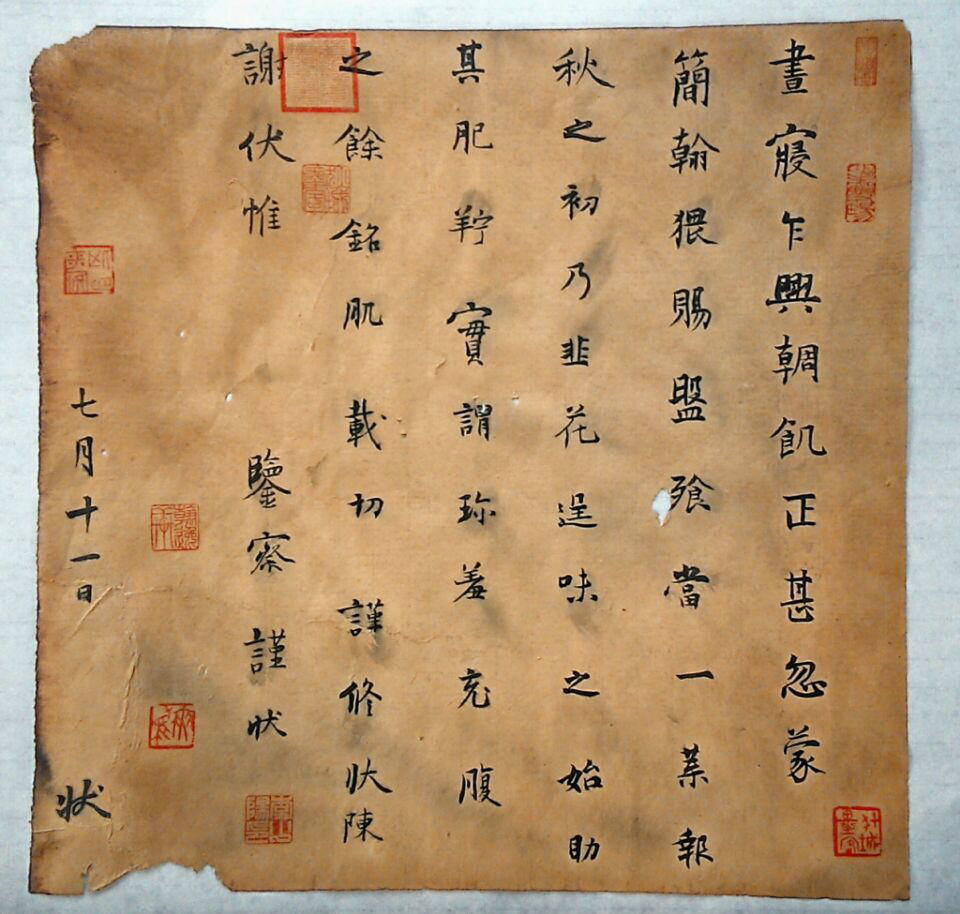 晝寢乍興朝飢正甚忽蒙
簡翰猥賜盤飧當一葉報
秋之初乃韭花逞味之始助
其肥羜實謂珎羞充腹
之餘銘肌載切謹修狀陳
謝伏惟鑒察謹狀
七月十一日狀